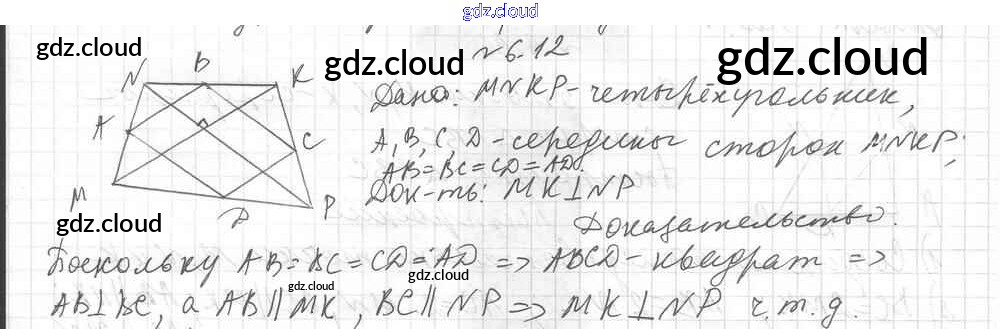 gdz.cloud
№ 6.12
gdz.cloud
gdz.cloud
gdz.cloud
N B K
Дано: MNKP - четырёхугольник,
A C
A, B, C, D - середины сторон MNKP;
AB = BC = CD = AD.
M
Док-ть: MK ⊥ NP
D P
gdz.cloud
gdz.cloud
Доказательство.
Поскольку AB = BC = CD = AD => ABCD - квадрат =>
gdz.cloud
gdz.cloud
AB ⊥ BC, а AB ∥ MK, BC ∥ NP => MK ⊥ NP ч.т.д.